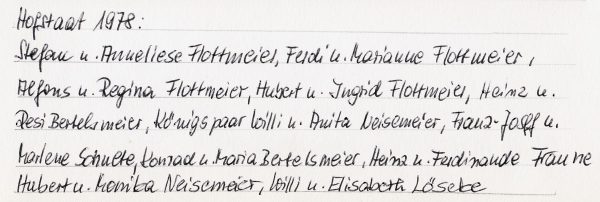 Hofstaat 1978:
Stefan u. Anneliese Flottmeier, Ferdi u. Marianne Flottmeier,
Alfons u. Regina Flottmeier, Hubert u. Ingrid Flottmeier, Heinz u.
Resi Bertelsmeier, Königspaar Willi u. Anita Neisemeier, Franz-Josef u.
Marlene Schulte, Konrad u. Maria Bertelsmeier, Heinz u. Ferdinande Franne
Hubert u. Monika Neisemeier, Willi u. Elisabeth Löseke